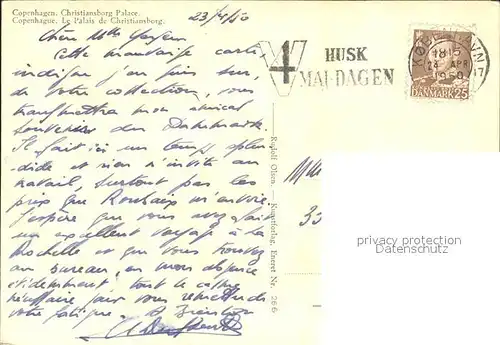 Copenhagen. Christiansborg Palace.
Copenhague. Le Palais de Christiansborg.
23/4/50
Chère Mlle
Cette mauvaise carte,
indigne j'en suis sûr,
de votre collection, vous
transmettra mon amical
souvenir du Danemark.
Il fait ici un temps splen-
dide et rien n'invite au
travail, surtout pas les
prix que Roubaix m'envoie.
J'espère que vous avez fait
un excellent voyage à la
Rochelle et que vous trouvez
au bureau, en mon absence
évidemment, tout le calme
nécessaire pour vous remettre de
votre fatigue. A bientôt
4
HUSK
MAJ-DAGEN
KØBENHAVN
1815
24 APR
1950
17
DANMARK 25
Rudolf Olsen. — Kunstforlag. Eneret Nr. 266
Mlle
33
privacy protection
Datenschutz